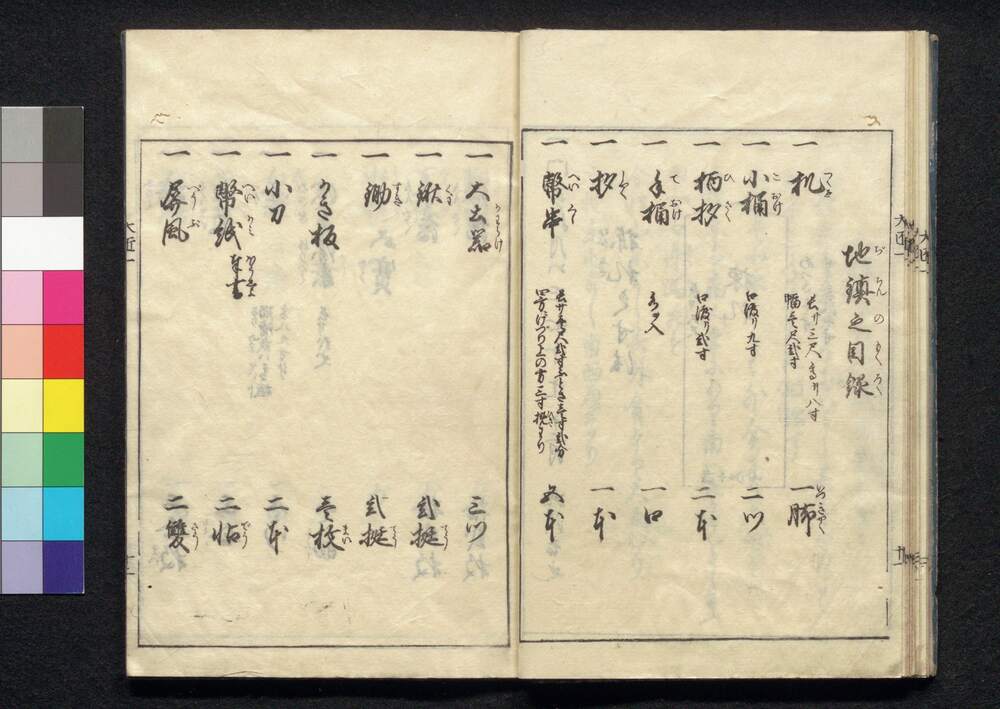 地鎮之目録
一 机 長サ三尺高サ八寸 幅壱尺弐寸 一脚
一 小桶 口渡り九寸 二ツ
一 柄杓 口渡り弐寸 二本
一 手桶 一口
一 杓 一本
一 幣串 長サ壱尺弐寸ふとさ壱寸弐分 四方けづり上の方三寸 五本
一 大土器 三ツ
一 鍬 弐挺
一 鋤 弐挺
一 板 壱枚
一 小刀 二本
一 幣紙 二帖
一 屏風 二双
大匠一